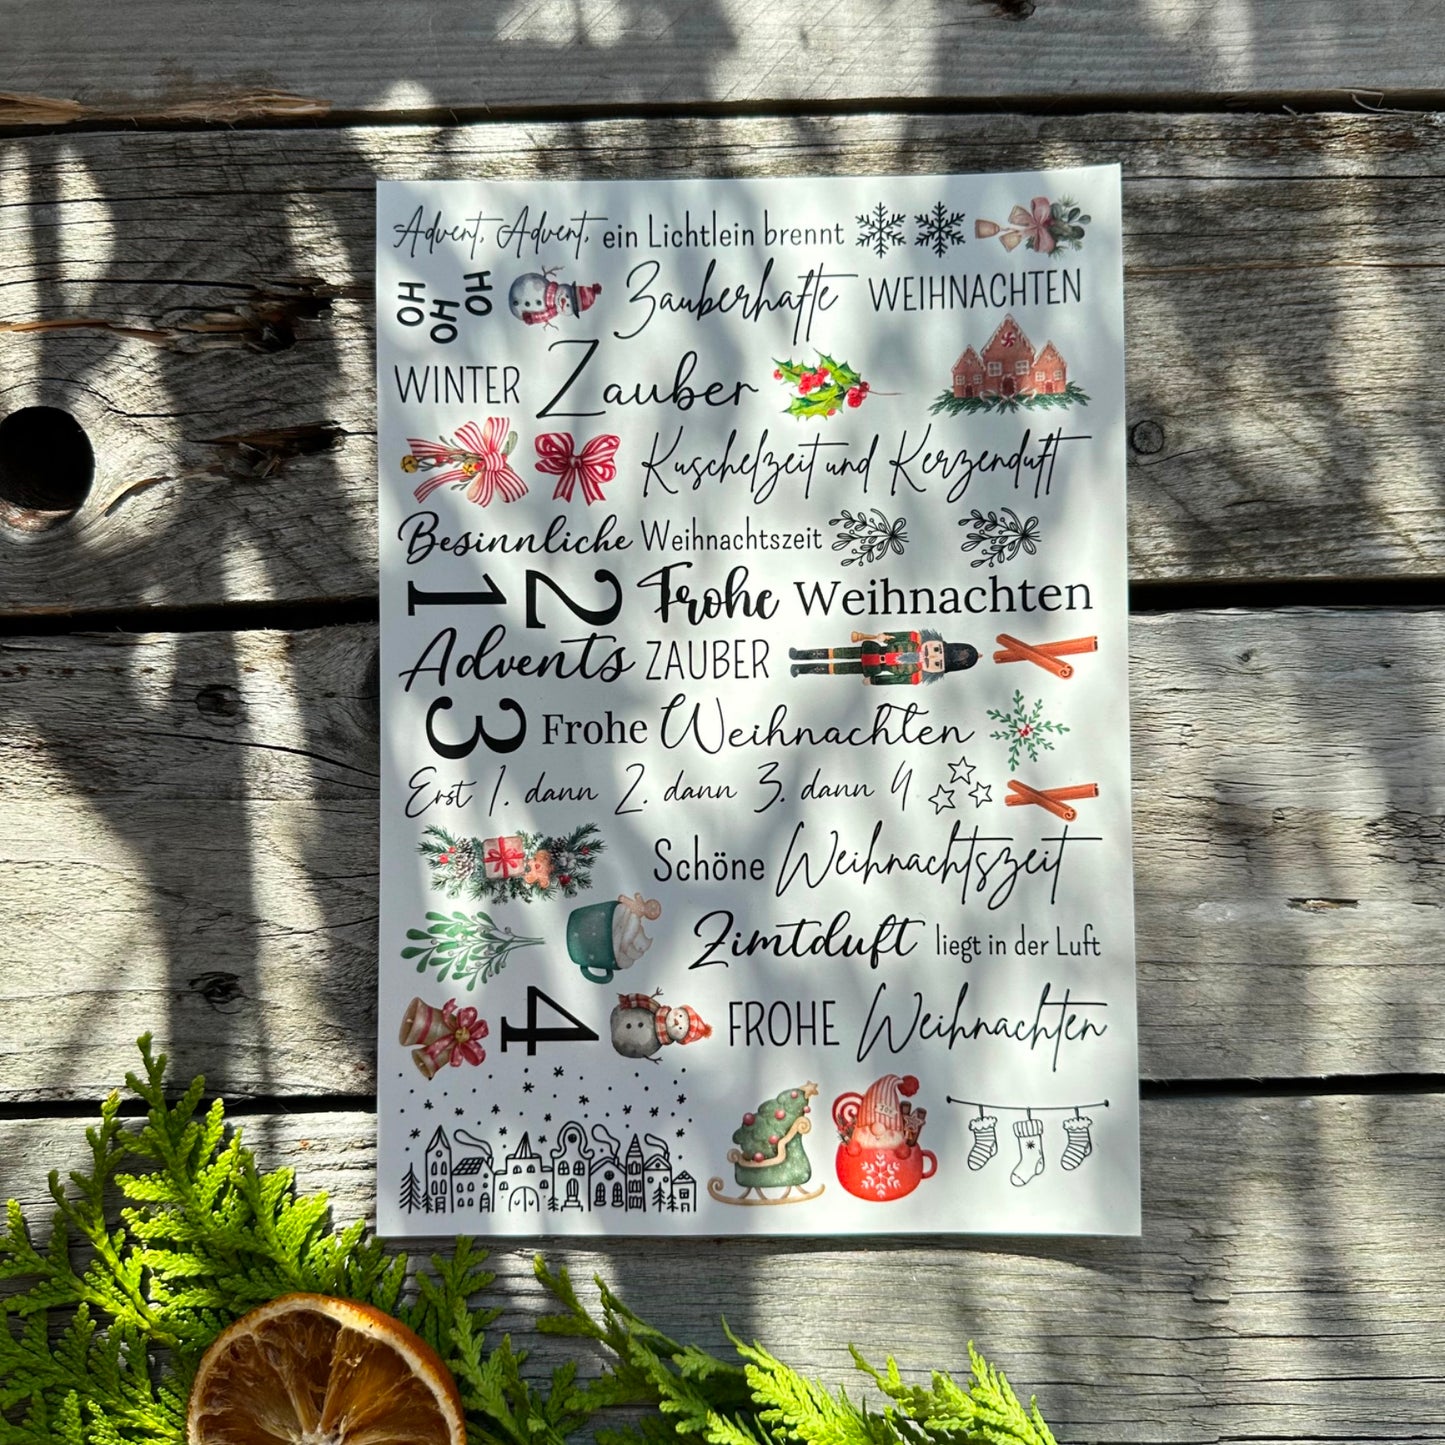 Advent, Advent, ein Lichtlein brennt
HO HO HO
Zauberhafte WEIHNACHTEN
WINTER Zauber
Kuschelzeit und Kerzenduft
Besinnliche Weihnachtszeit
1 2 Frohe Weihnachten
Advents ZAUBER
3 Frohe Weihnachten
Erst 1. dann 2. dann 3. dann 4.
Schöne Weihnachtszeit
Zimtduft liegt in der Luft
4 FROHE Weihnachten
JOY